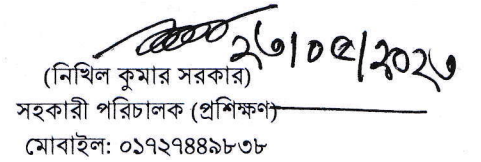 ২৩/০৫/২০২৩
(নিখিল কুমার সরকার)
সহকারী পরিচালক (প্রশিক্ষণ)
মোবাইল: ০১৭২৭৪৪৯৮৩৮